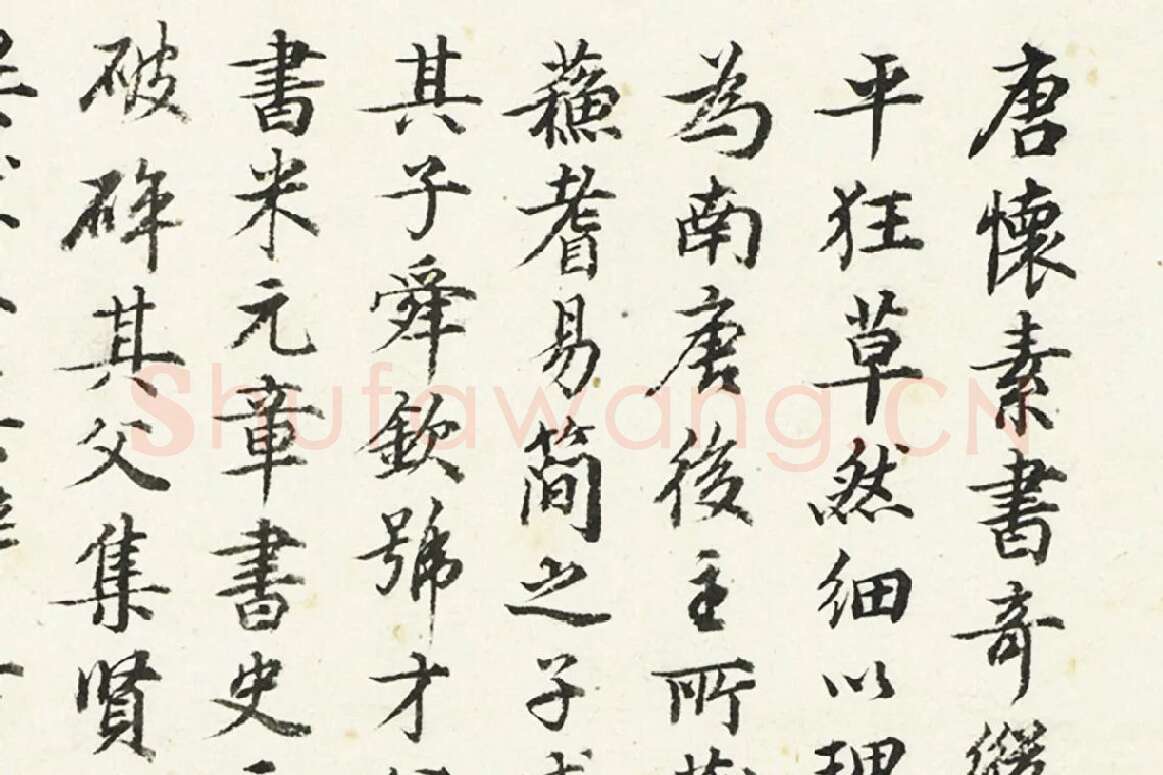 唐懷素書奇縱
平狂草然細以理
為南唐後主所藏
蘇耆易簡之子
其子舜欽號才
書米元章書史
破碎其父集賢
Shufawang.CN